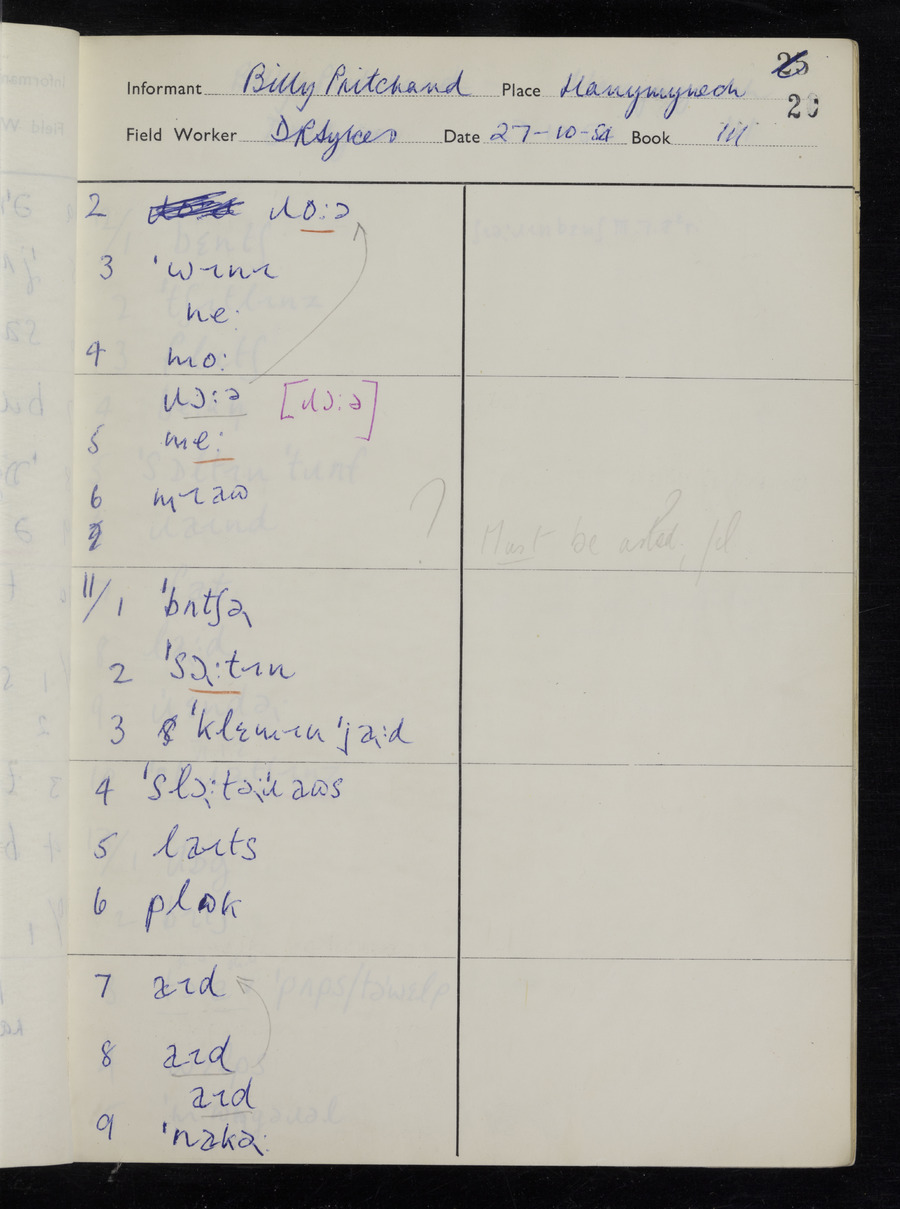 25
Informant Billy Pritchard Place Llanymynech 20
Field Worker DRSykes Date 27-10-54 Book III
2 ɹo:ə
3 ˈwɪnɪ
ne·
4 mo:
ɹɔ:ə [ɹɔ:ə]
5 me:
6 mɪəʊ
? Must be asked, pl.
II/1 ˈbʊtʃə
2 ˈsə:tɪn
3 ˈklɛmɪn ˈja:d
4 ˈslɔ:təˈɹaʊs
5 laɪts
6 plʊk
7 aɪd
8 aɪd
aɪd
9 ˈnakə: